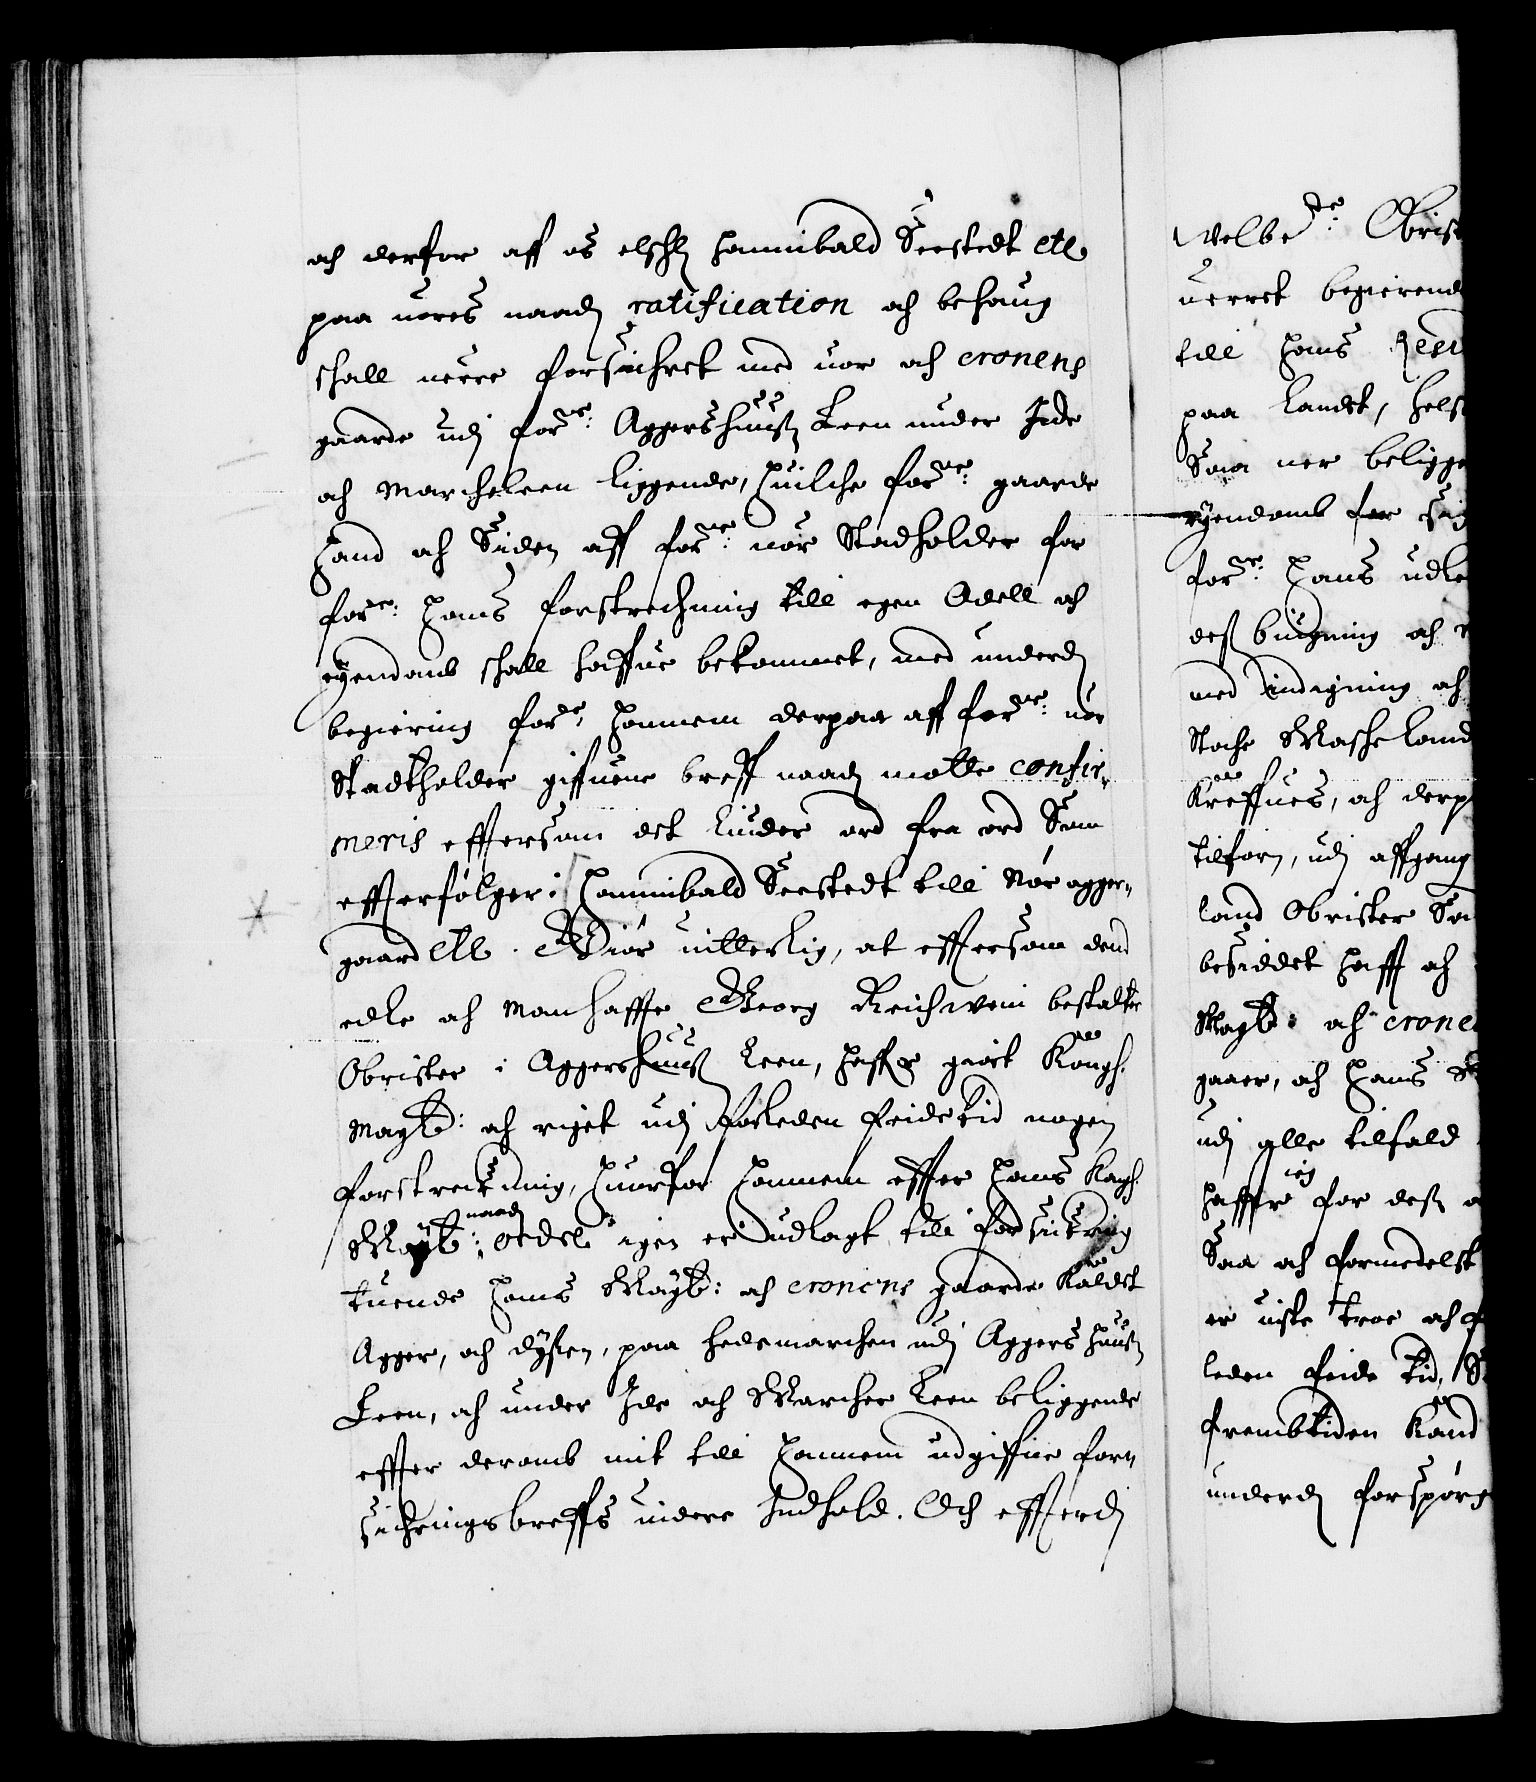 och derfor aff os elschl Hannibald Seestedt etc
paa vores naadj ratification och behaug
schall verre forsichret med vor och cronens
gaarde udj forne: Aggershuuss Leen under Ide
och Marcheleen liggende, Huilche forne: gaarde
Hand och Siden aff forne: vor Stadholder for
forne: Hans forstrechning till egen Odell och
eyendomb schall haffue bekommet, med underdj
begiering forne, Hannem derpaa aff forne: vor
Stadtholder giffuene breff naadj motte confir„
meris effersom det liuder ord fra ord Som
effterfølger: Hannibald Seestedt till Nør agger„
gaard etc. Giør vitterlig, at effersom dend
edle och Manhaffte Georg Reichwein bestalter
Obrister i Aggershuuss Leen, Haffr giort Kongh.
Mayt: och riget udj forleden feide tid nogen
forstreckning, Huorfor Hannem effter Hans Kongh.
naadj
Mayt: ordel igen er udlagt till forsickring
tuende Hans Mayt: och cronens gaarde Kaldet
Agger, och dysten, paa Hedemarchen udj Aggershuuss
Leen, och under Ide och Marcher Leen beliggende
effter deromb mit till Hannem udgiffue for„
sichringsbreffs videre Indhold. Och effterdj
Welbede: Obrist
verret begierend
till Hans
paa Landet, hels
Saa ner beligge
eyendomb for sig
forne: Hans udle
dess bugning och
med indegning och
Stoche Masche land
Kreffues, och derp
tilforn, udj affgang
land Obrister Se
besiddet Haff och
Mayt: och crone
gaaer, och Hans
udj alle tilfald
ieg
Haffuer for dess
Saa och formedelst
er viste troe och
leden feide tid, S
frembtiden Kand
underdj forspørg